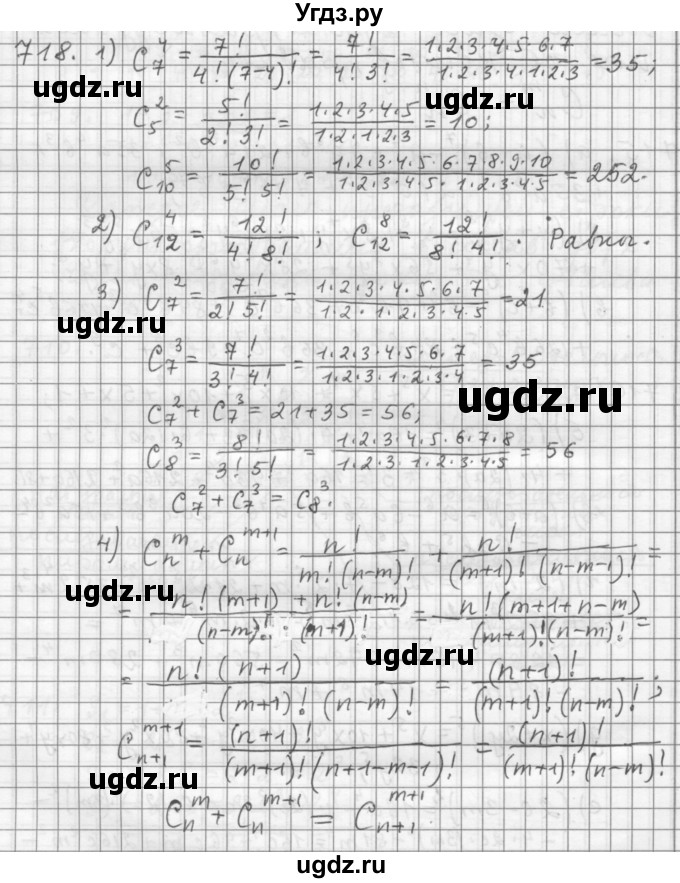 Угдз.ру
718. 1) C₇⁴ = 7!/(4!(7-4)!) = 7!/(4!3!) = (1·2·3·4·5·6·7)/(1·2·3·4·1·2·3) = 35;
ugdz.ru ugdz.ru
C₅² = 5!/(2!3!) = (1·2·3·4·5)/(1·2·1·2·3) = 10;
C₁₀⁵ = 10!/(5!5!) = (1·2·3·4·5·6·7·8·9·10)/(1·2·3·4·5·1·2·3·4·5) = 252.
ugdz.ru
2) C₁₂⁴ = 12!/(4!8!); C₁₂⁸ = 12!/(8!4!). Равны.
3) C₇² = 7!/(2!5!) = (1·2·3·4·5·6·7)/(1·2·1·2·3·4·5) = 21
ugdz.ru
C₇³ = 7!/(3!4!) = (1·2·3·4·5·6·7)/(1·2·3·1·2·3·4) = 35
ugdz.ru
C₇² + C₇³ = 21+35 = 56;
C₈³ = 8!/(3!5!) = (1·2·3·4·5·6·7·8)/(1·2·3·1·2·3·4·5) = 56
C₇² + C₇³ = C₈³.
4) Cₙᵐ + Cₙᵐ⁺¹ = n!/(m!(n-m)!) + n!/((m+1)!(n-m-1)!) =
ugdz.ru
= (n!(m+1) + n!(n-m))/((n-m)!·(m+1)!) = n!(m+1+n-m)/((m+1)!(n-m)!) =
ugdz.ru
= n!(n+1)/((m+1)!(n-m)!) = (n+1)!/((m+1)!(n-m)!);
Cₙ₊₁ᵐ⁺¹ = (n+1)!/((m+1)!(n+1-m-1)!) = (n+1)!/((m+1)!(n-m)!)
ugdz.ru
Cₙᵐ + Cₙᵐ⁺¹ = Cₙ₊₁ᵐ⁺¹
ugdz.ru